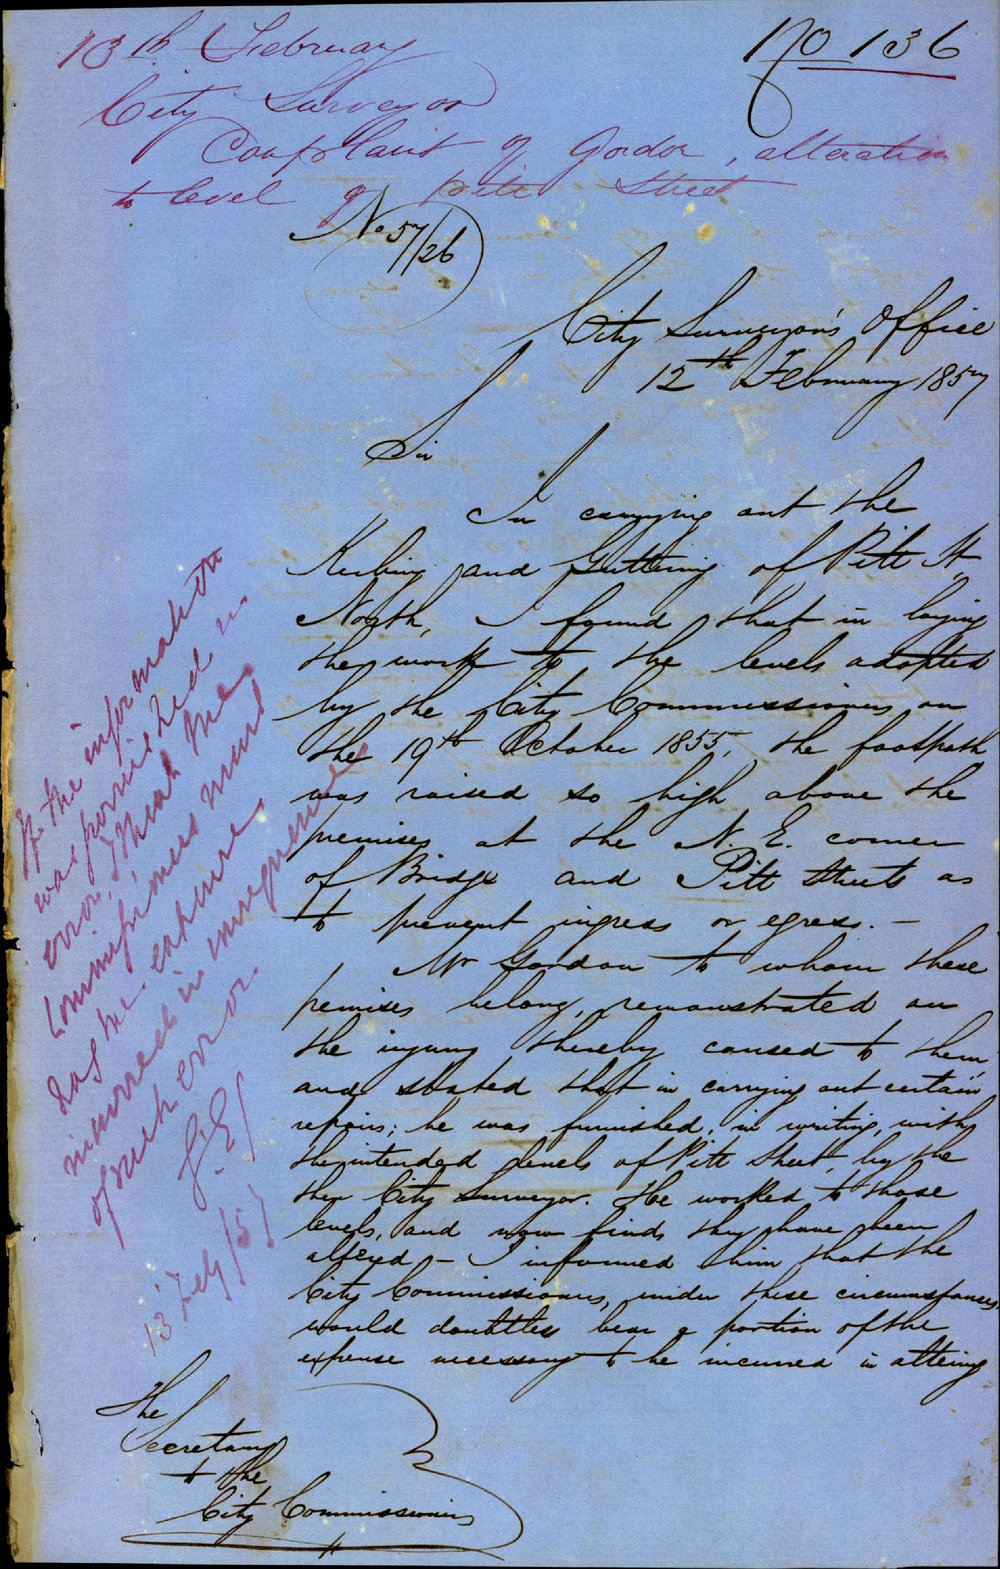 No 136
13th February
City Surveyor
Complaint of Gordon, alteration
to level of Pitt Street
No 57/26
City Surveyor's Office
12th February 1857
Sir
In carrying out the
Kerbing and Guttering of Pitt St
North, I found that in laying
the work to the levels adopted
by the City Commissioners on
the 19th October 1855, the footpath
was raised so high above the
premises at the N. E. corner
of Bridge and Pitt Streets as
to prevent ingress or egress. —
Mr Gordon to whom these
premises belong, remonstrated on
the injury thereby caused to them
and stated that in carrying out certain
repairs; he was furnished, in writing, with
the intended levels of Pitt Street, by the
then City Surveyor. He worked to those
levels, and now finds they have been
altered — I informed him that the
City Commissioners, under these circumstances,
would doubtless bear a portion of the
expense necessary to be incurred in altering
The
Secretary
to the
City Commissioners
If the information
was furnished in
error, I think the
Commissioners must
pay the expense
incurred in consequence
of such error.
G.E/
13 Feby/57